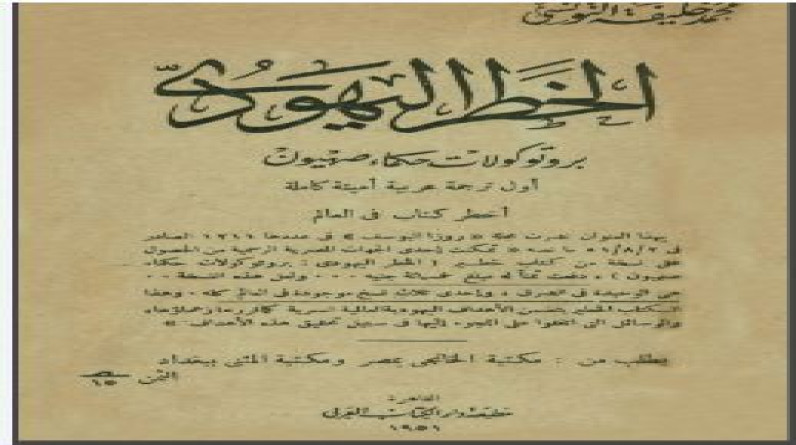 محمد خليفة التونسي
الخطر اليهودي
بروتوكولات حكماء صهيون
أول ترجمة عربية أمينة كاملة
أخطر كتاب فى العالم
بهذا العنوان نشرت مجلة « روز اليوسف » فى عددها ١٢١١ الصادر
فى ٥١/٨/٢ ما نصه « تمكنت إحدى الجهات المصرية الرسمية من الحصول
على نسخة من كتاب خطير ( الخطر اليهودى : بروتوكولات حكماء
صهيون ) ، دفعت ثمناً له مبلغ خمسمائة جنيه ٠٠٠ وثمن هذه النسخة ٠٠
هى الوحيدة فى الشرق ، وإحدى ثلاث نسخ موجودة فى العالم كله ، وهذا
الكتاب الخطير يتضمن الأهداف اليهودية العالمية السرية
والوسائل التى اتفقوا على اللجوء إليها فى سبيل تحقيق هذه الأهداف »
يطلب من : مكتبة الخانجى بمصر ومكتبة المثنى ببغداد
الثمن ١٥
القاهرة
مطبعة دار الكتاب العربى
١٩٥١